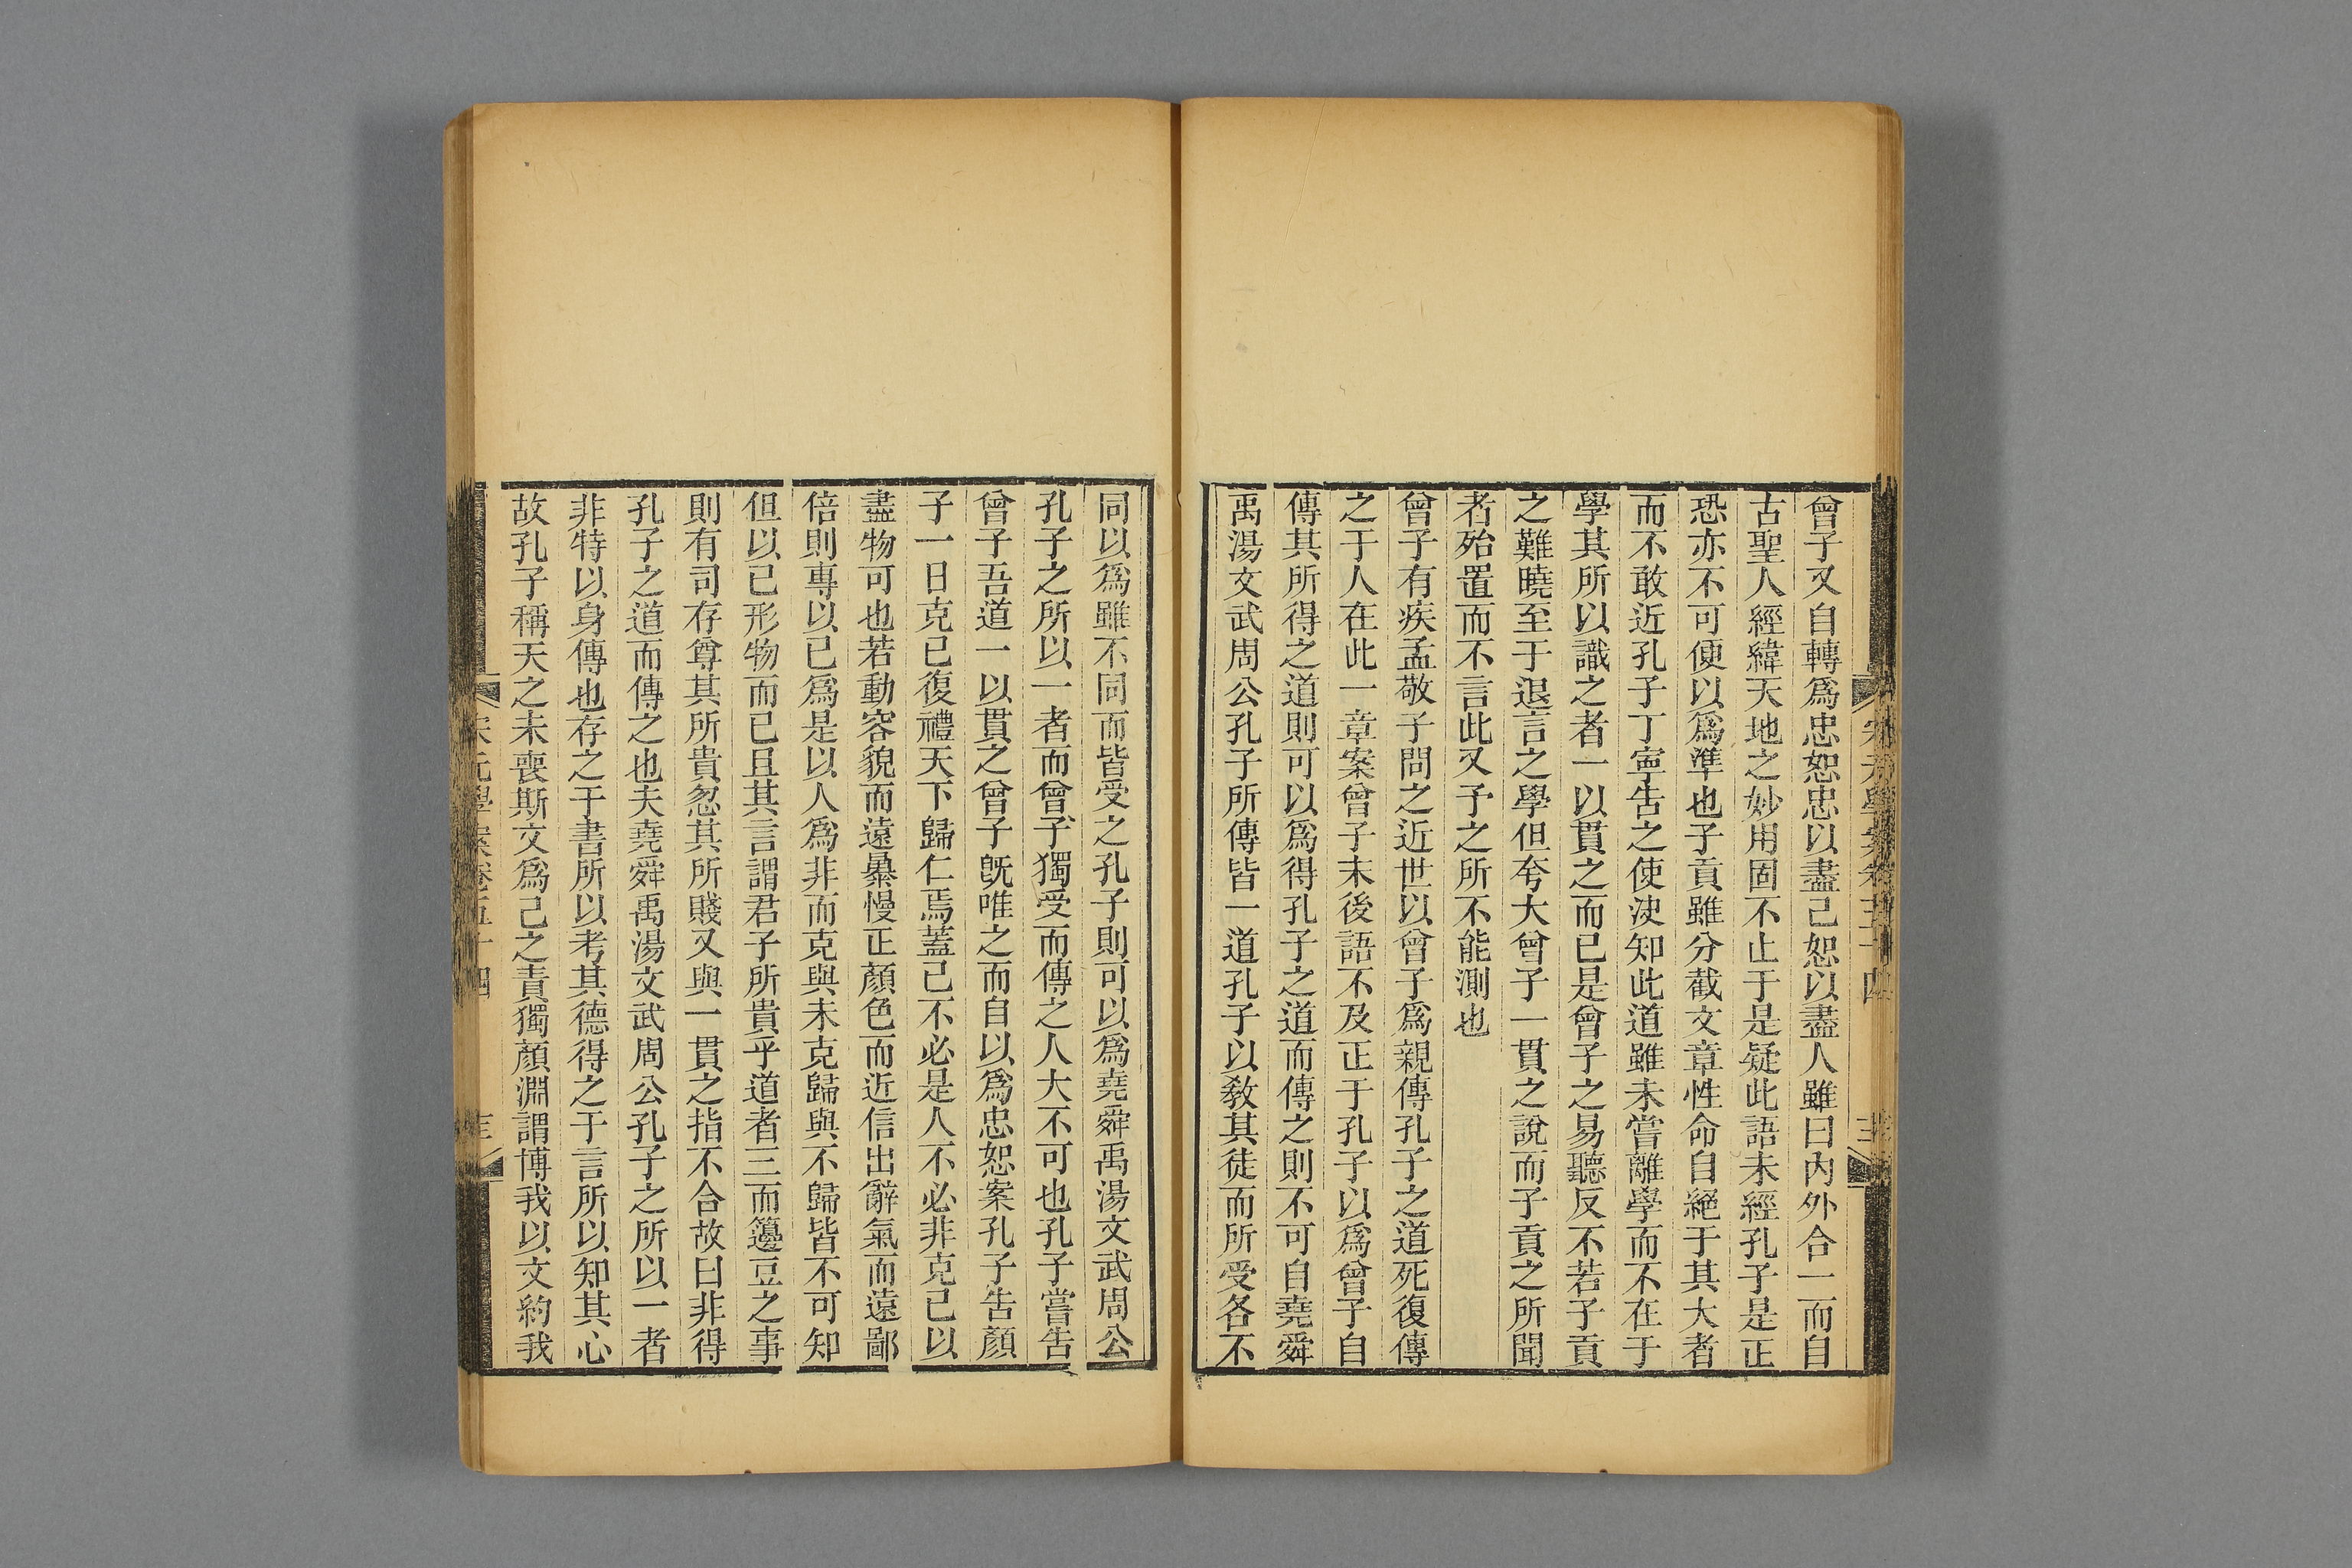 曾子又自轉爲忠恕忠以盡己恕以盡人雖曰內外合一而自
古聖人經緯天地之妙用固不止于是疑此語未經孔子是正
恐亦不可便以爲準也子貢雖分截文章性命自絕于其大者
而不敢近孔子丁寧告之使決知此道雖未嘗離學而不在于
學其所以識之者一以貫之而已是曾子之易聽反不若子貢
之難曉至于退言之學但夸大曾子一貫之說而子貢之所聞
者殆置而不言此又予之所不能測也
曾子有疾孟敬子問之近世以曾子爲親傳孔子之道死復傳
之于人在此一章案曾子末後語不及正于孔子以爲曾子自
傳其所得之道則可以爲得孔子之道而傳之則不可自堯舜
禹湯文武周公孔子所傳皆一道孔子以敎其徒而所受各不
同以爲雖不同而皆受之孔子則可以爲堯舜禹湯文武周公
孔子之所以一者而曾子獨受而傳之人大不可也孔子嘗告
曾子吾道一以貫之曾子旣唯之而自以爲忠恕案孔子告顏
子一日克己復禮天下歸仁焉蓋己不必是人不必非克己以
盡物可也若動容貌而遠暴慢正顏色而近信出辭氣而遠鄙
倍則專以己爲是以人爲非而克與未克歸與不歸皆不可知
但以己形物而已且其言謂君子所貴乎道者三而籩豆之事
則有司存尊其所貴忽其所賤又與一貫之指不合故曰非得
孔子之道而傳之也夫堯舜禹湯文武周公孔子之所以一者
非特以身傳也存之于書所以考其德得之于言所以知其心
故孔子稱天之未喪斯文爲己之責獨顏淵謂博我以文約我
宋元學案卷五十四